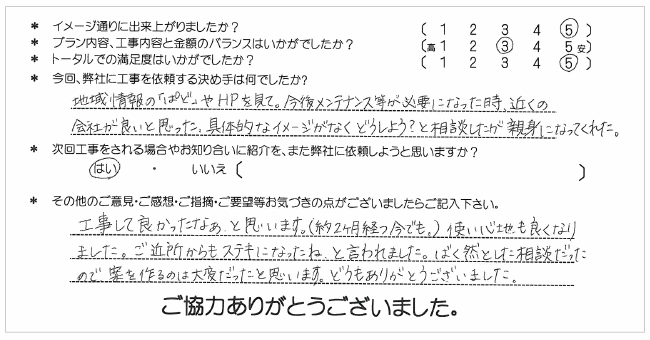 * イメージ通りに出来上がりましたか? ( 1 2 3 4 5 )
* プラン内容、工事内容と金額のバランスはいかがでしたか? (高 1 2 3 4 5 安)
* トータルでの満足度はいかがでしたか? ( 1 2 3 4 5 )
* 今回、弊社に工事を依頼する決め手は何でしたか?
地域情報の「ぱど」やHPを見て。今後メンテナンス等が必要になった時、近くの
会社が良いと思った。具体的なイメージがなくどうしよう?と相談したが親身になってくれた。
* 次回工事をされる場合やお知り合いに紹介を、また弊社に依頼しようと思いますか?
はい ・ いいえ ( )
* その他のご意見・ご感想・ご指摘・ご要望等お気づきの点がございましたらご記入下さい。
工事して良かったなぁ と思います。(約2ヶ月経つ今でも。) 使い心地も良くなり
ました。ご近所からもステキになったね と言われました。ばく然とした相談だった
ので 案を作るのは大変だったと思います。どうもありがとうございました。
ご協力ありがとうございました。